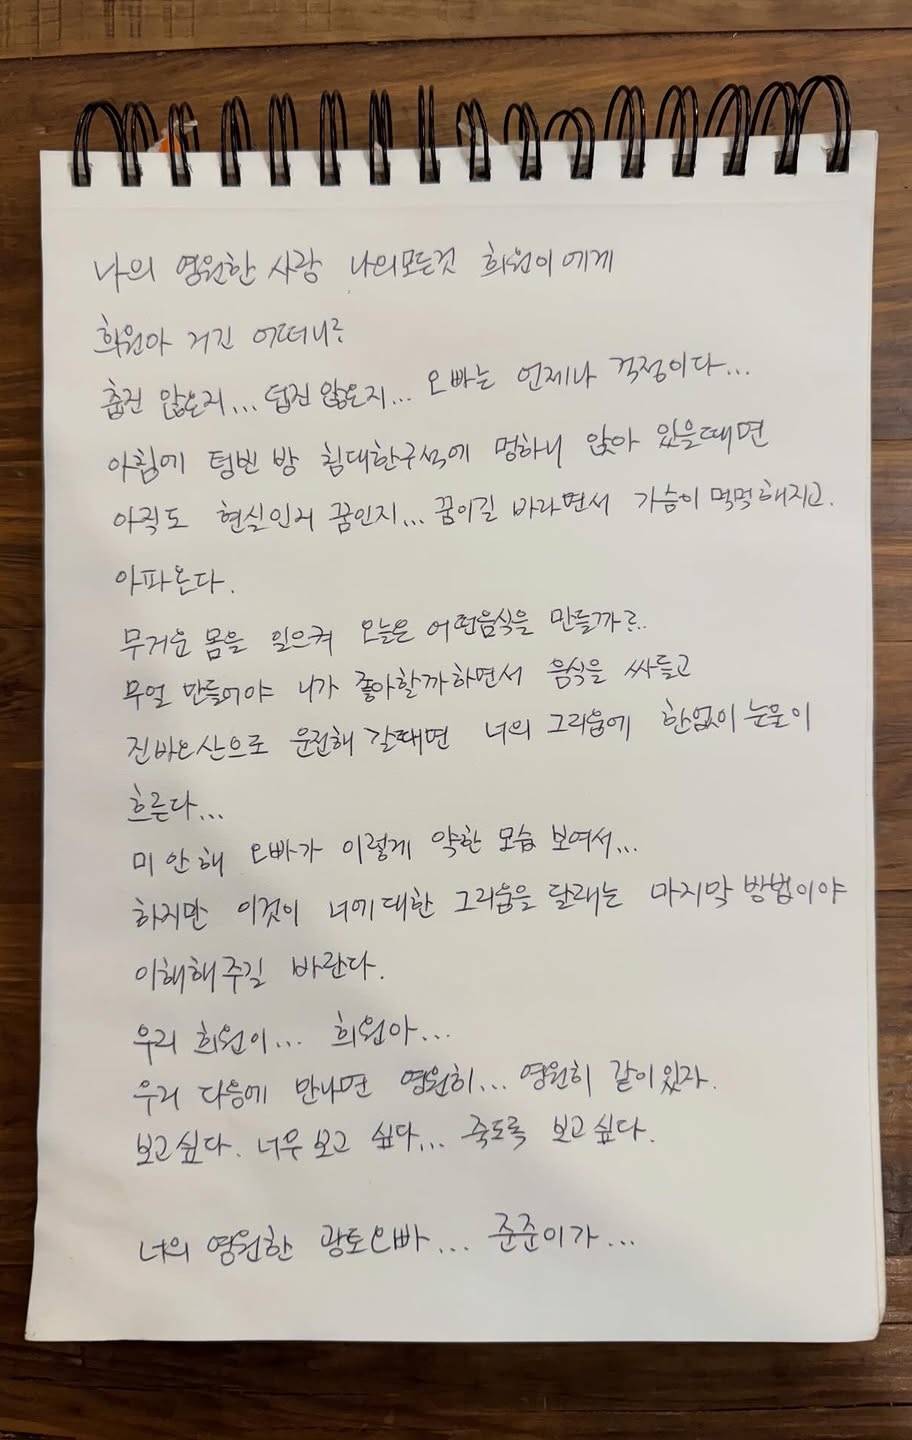 나의 영원한 사랑 나의모든것 희원이에게
희원아 거긴 어떠니?
춥진 않은지... 덥진않은지... 오빠는 언제나 걱정이다...
아침에 텅빈 방 침대한구석에 멍하니 앉아 있을때면
아직도 현실인지 꿈인지... 꿈이길 바라면서 가슴이 먹먹해지고.
아파온다.
무거운 몸을 일으켜 오늘은 어떤음식을 만들까?..
무얼 만들어야 니가 좋아할까하면서 음식을 싸들고
진바오산으로 운전해 갈때면 너의 그리움에 한없이 눈물이
흐른다...
미안해 오빠가 이렇게 약한 모습 보여서...
하지만 이것이 너에대한 그리움을 달래는 마지막 방법이야
이해해주길 바란다.
우리 희원이... 희원아...
우리 다음에 만나면 영원히... 영원히 같이있자.
보고싶다. 너무보고 싶다... 죽도록 보고싶다.
너의 영원한 광토오빠... 준준이가...